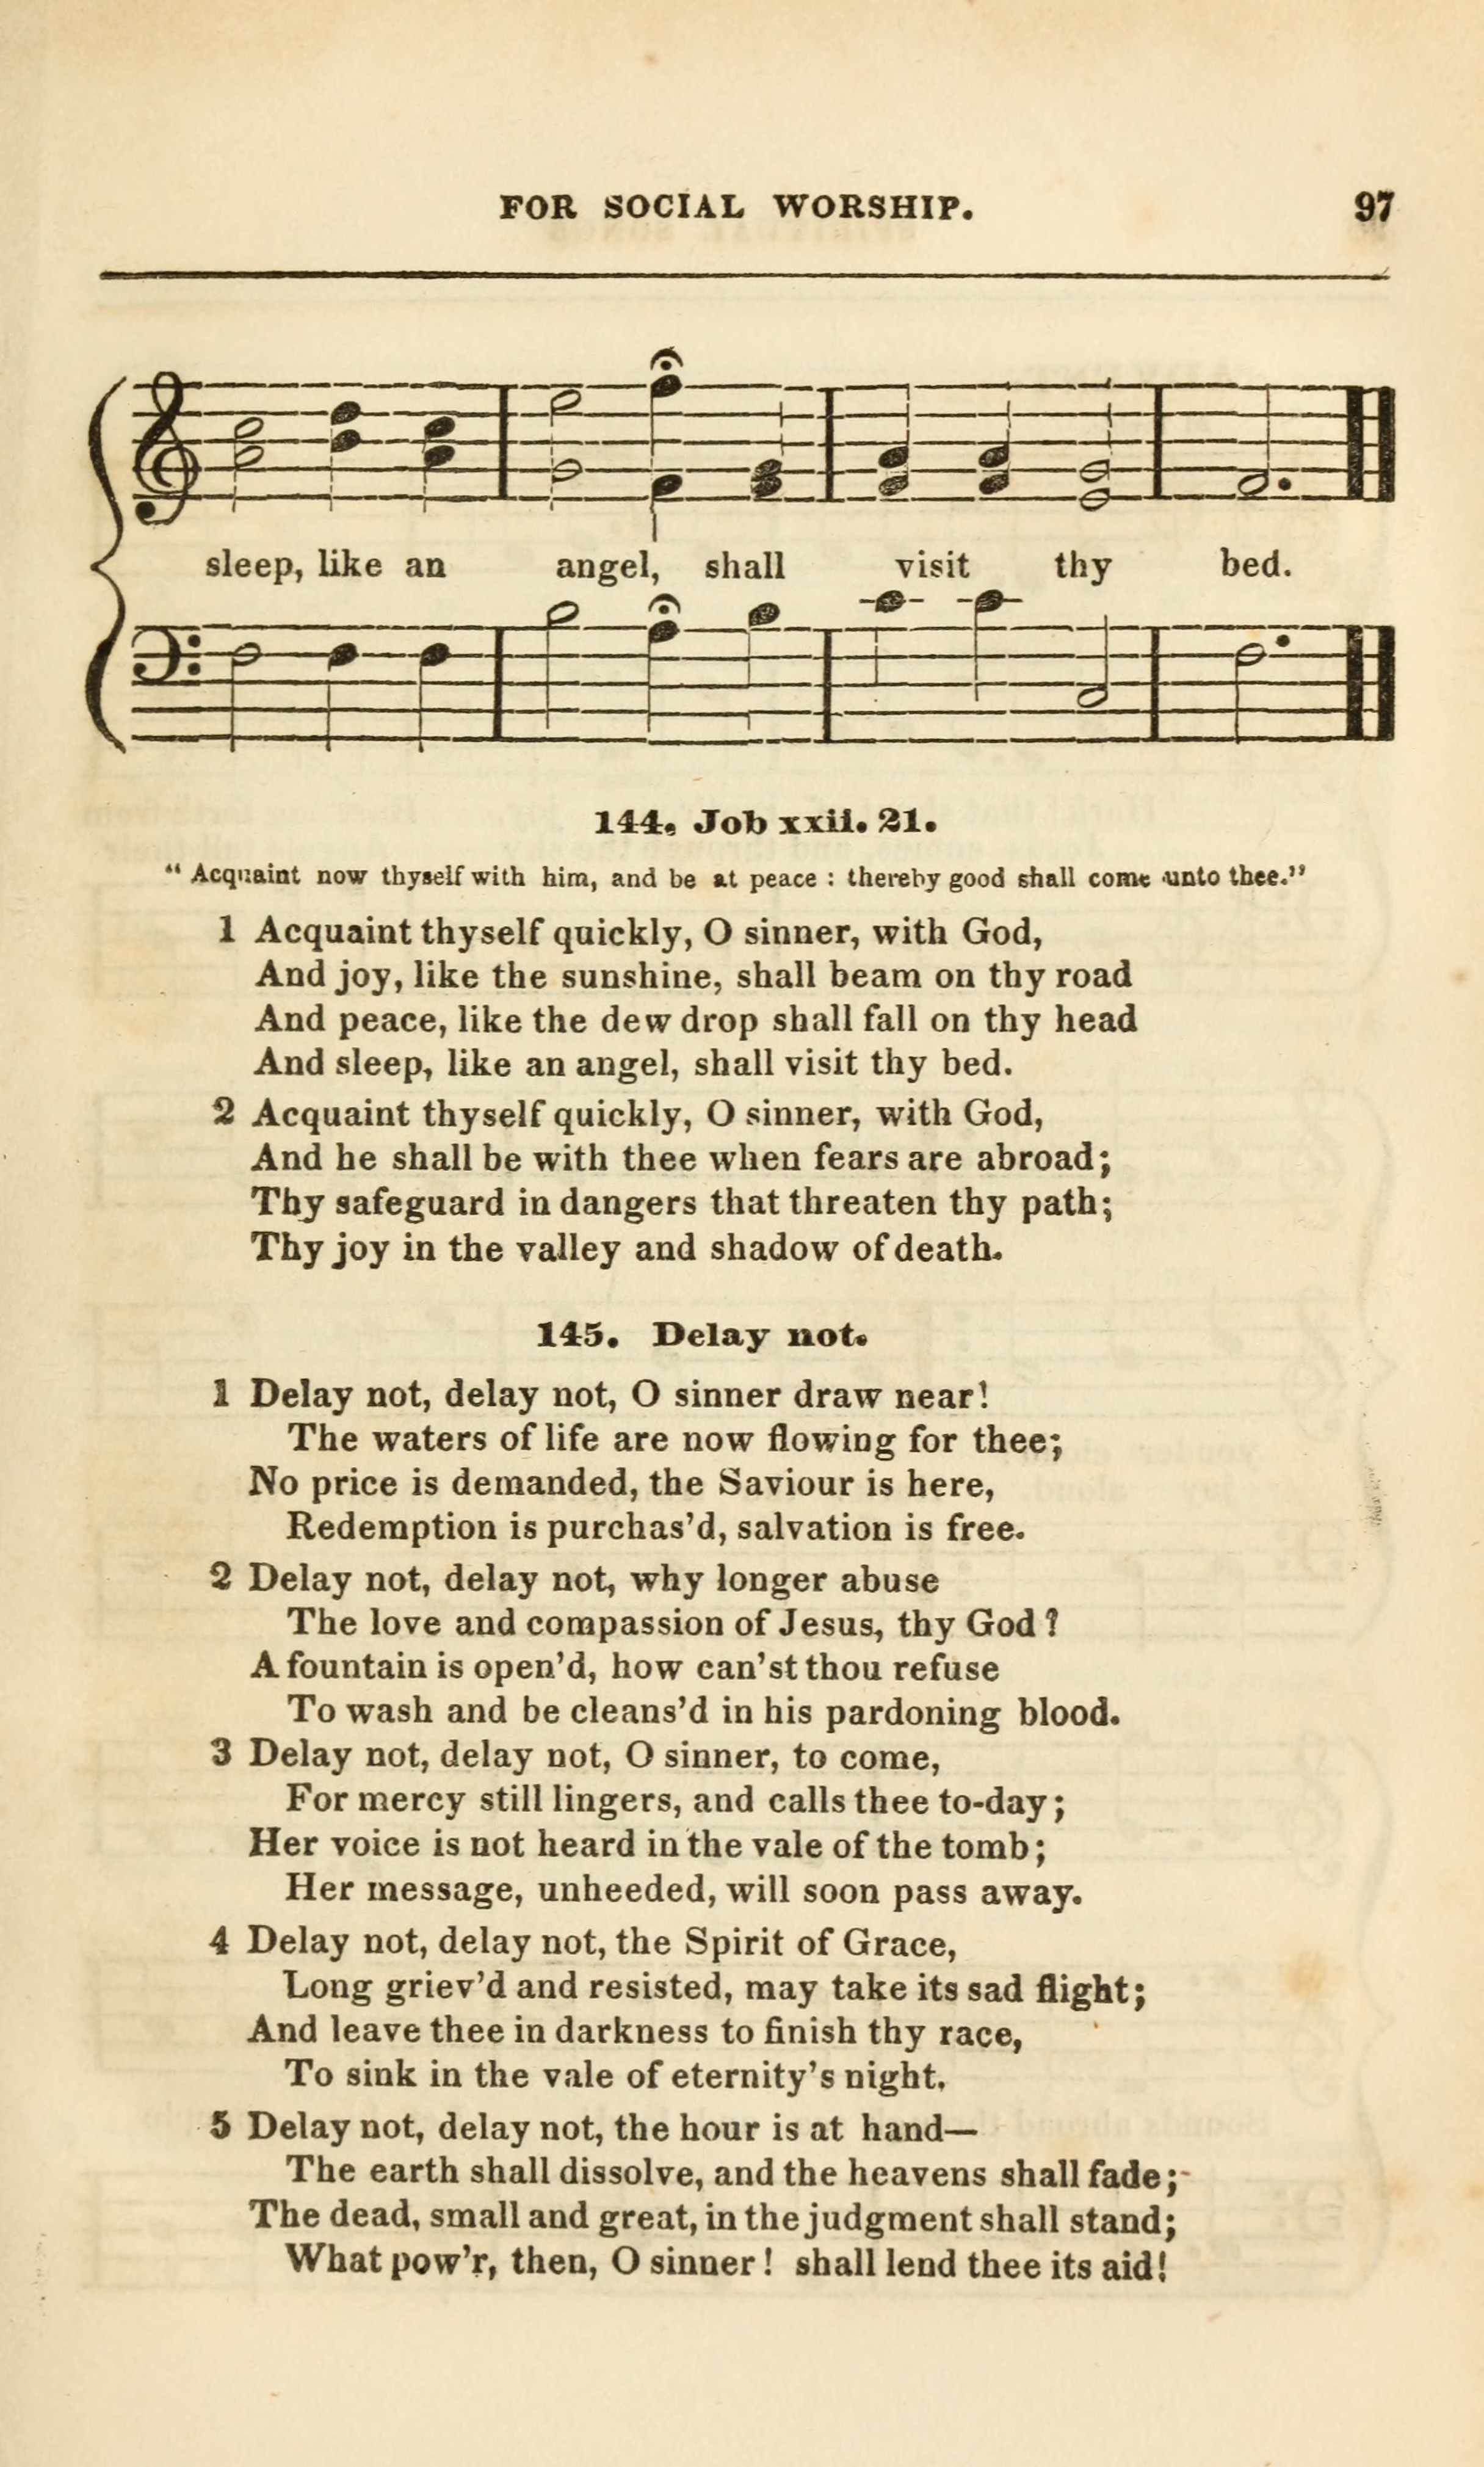 FOR SOCIAL WORSHIP. 97
sleep, like an angel, shall visit thy bed.
144. Job xxii. 21.
"Acquaint now thyself with him, and be at peace : thereby good shall come unto thee."
1 Acquaint thyself quickly, O sinner, with God,
And joy, like the sunshine, shall beam on thy road
And peace, like the dew drop shall fall on thy head
And sleep, like an angel, shall visit thy bed.
2 Acquaint thyself quickly, O sinner, with God,
And he shall be with thee when fears are abroad;
Thy safeguard in dangers that threaten thy path;
Thy joy in the valley and shadow of death.
145. Delay not.
1 Delay not, delay not, O sinner draw near!
The waters of life are now flowing for thee;
No price is demanded, the Saviour is here,
Redemption is purchas'd, salvation is free.
2 Delay not, delay not, why longer abuse
The love and compassion of Jesus, thy God?
A fountain is open'd, how can'st thou refuse
To wash and be cleans'd in his pardoning blood.
3 Delay not, delay not, O sinner, to come,
For mercy still lingers, and calls thee to-day;
Her voice is not heard in the vale of the tomb;
Her message, unheeded, will soon pass away.
4 Delay not, delay not, the Spirit of Grace,
Long griev'd and resisted, may take its sad flight;
And leave thee in darkness to finish thy race,
To sink in the vale of eternity's night.
5 Delay not, delay not, the hour is at hand—
The earth shall dissolve, and the heavens shall fade;
The dead, small and great, in the judgment shall stand;
What pow'r, then, O sinner! shall lend thee its aid!